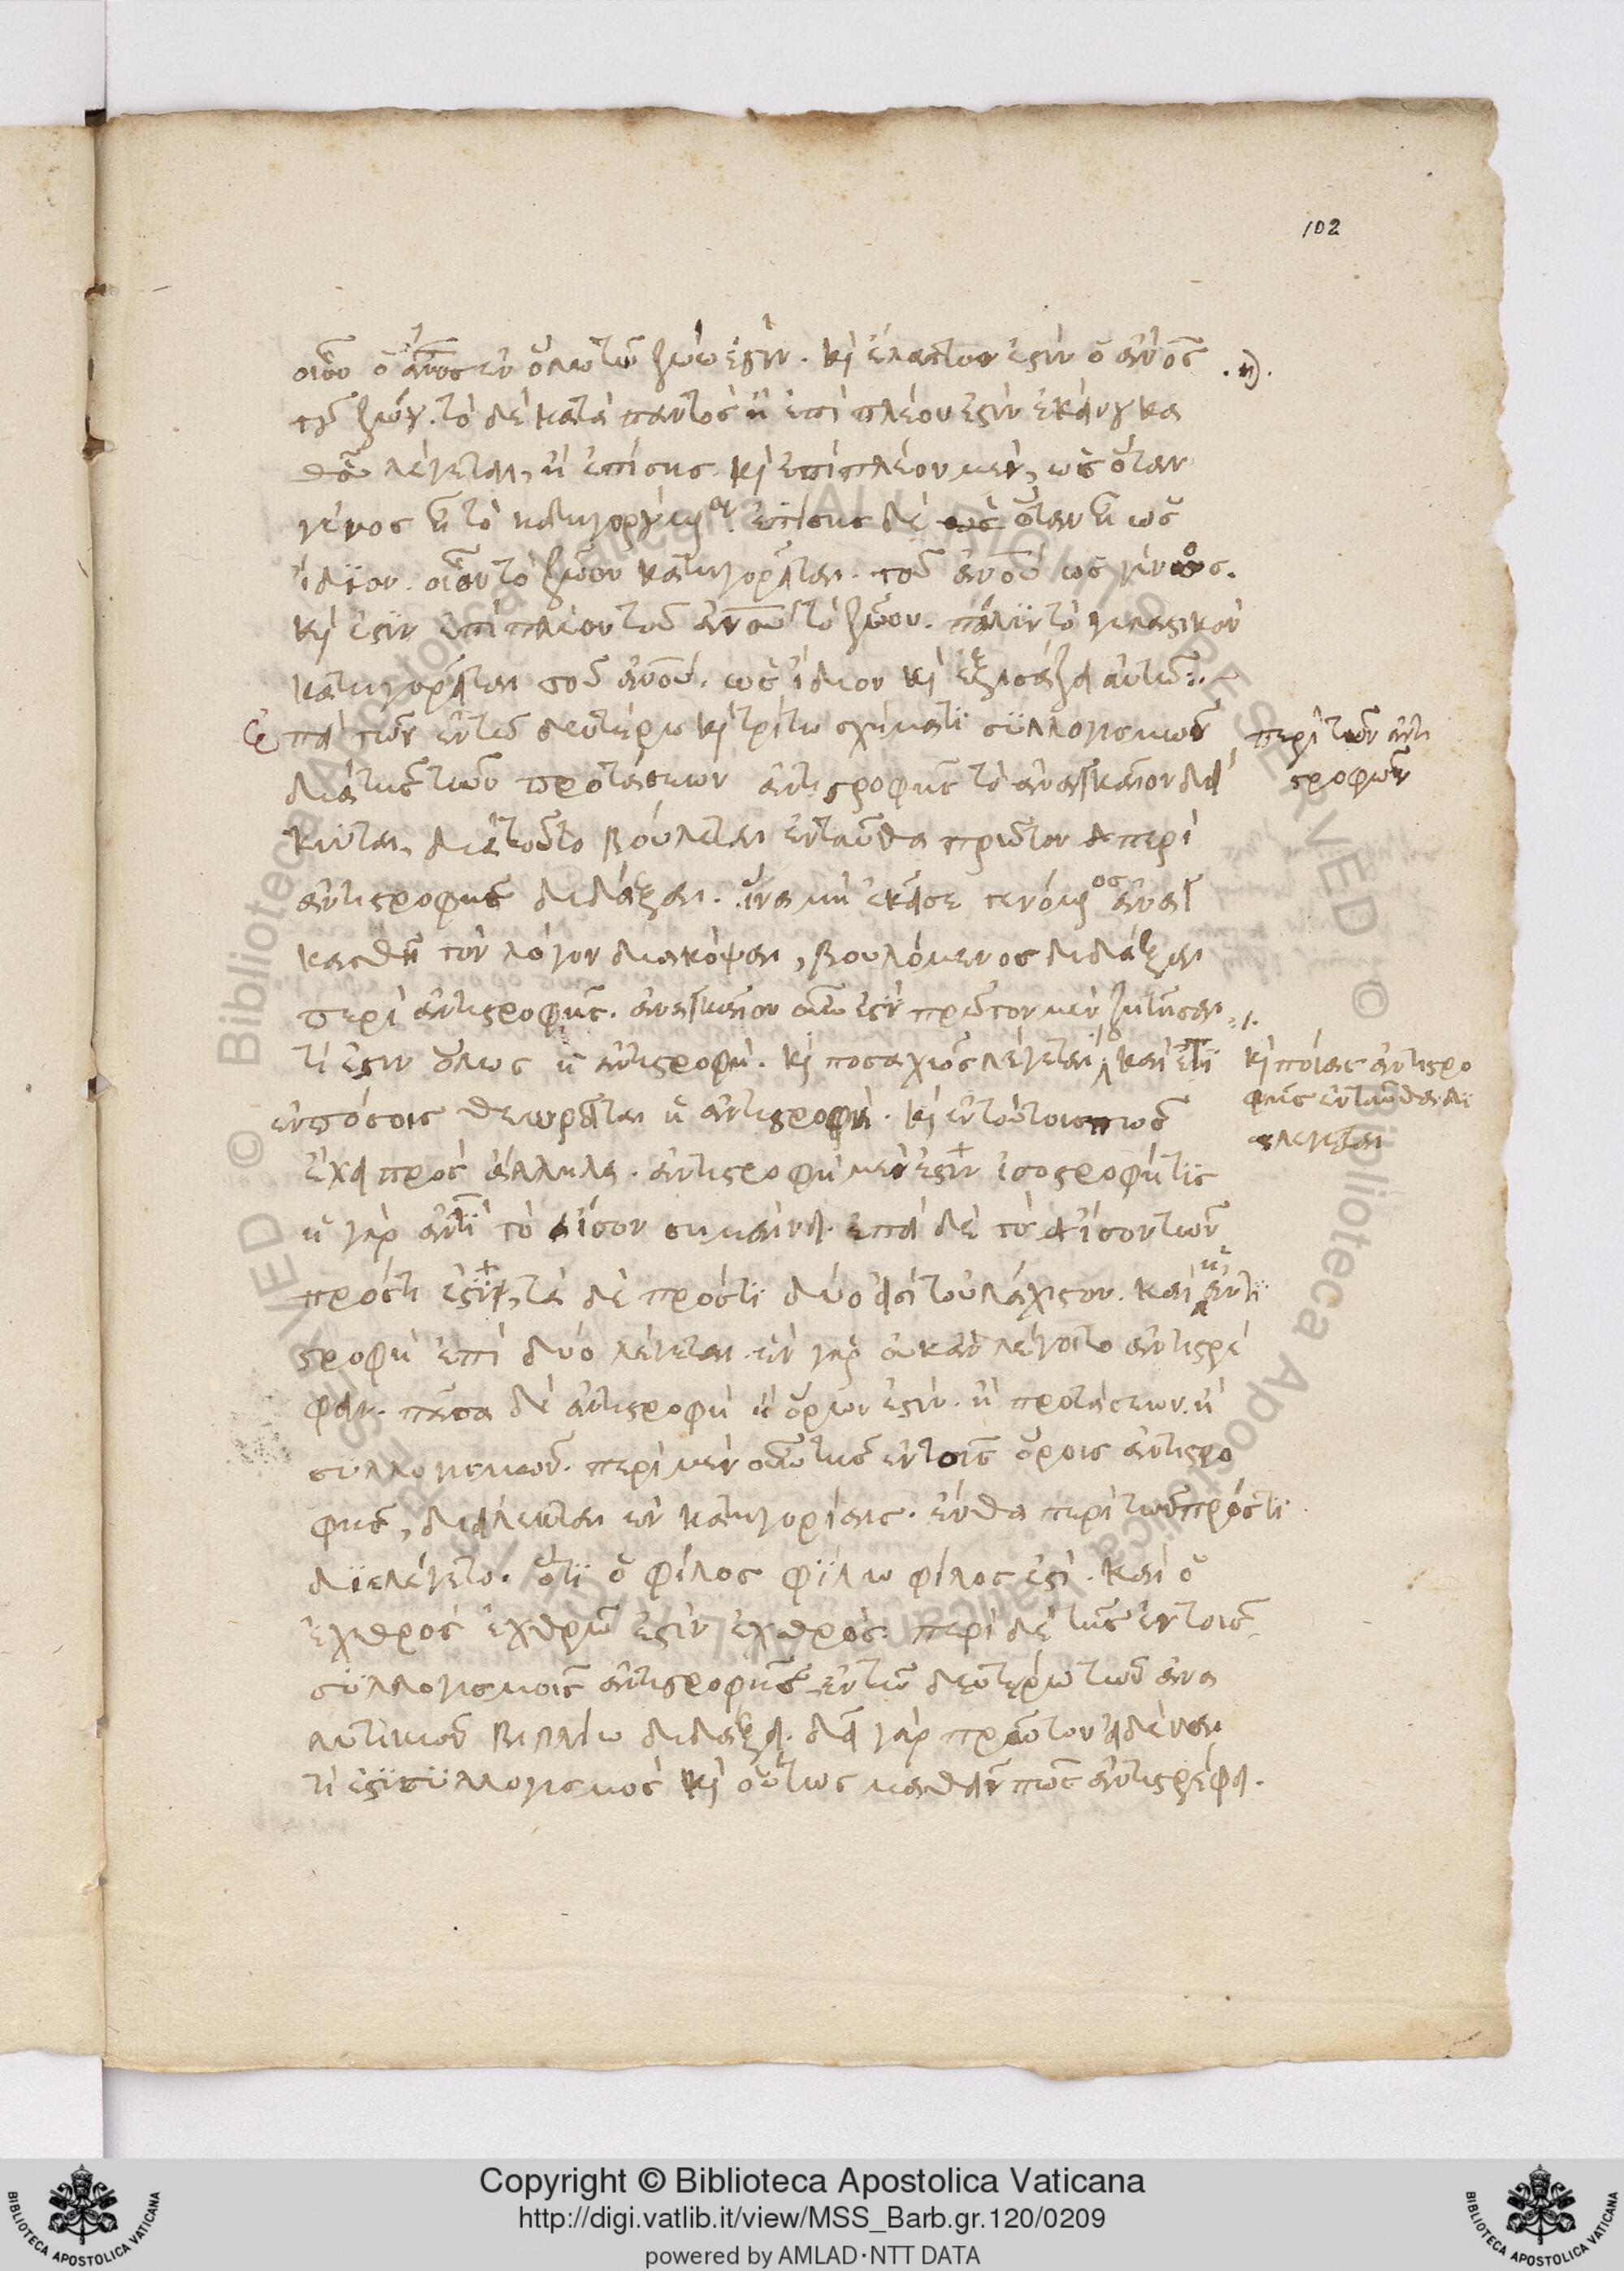 102
οἷον ὁ ἄνος ἐν ὅλω τῶ ζώω ἐστίν. κ ἔλαττον ἐστὶν ὁ ἄνος
τοῦ ζώου. τὸ δὲ κατὰ παντὸς ἢ ἐπὶ πλέον ἐστὶν ἐκείνου κα
θοῦ λέγεται, ἢ ἐπίσης. κ ἐπὶ πλέον μὲν, ὡς ὅταν
γένος ᾖ τὸ κατηγορούμεν. ἐπίσης δὲ ὡς ὅταν ᾖ ὡς
ἴδϊον. οἷον τὸ ζῶον κατηγορεῖται τοῦ ἀνοῦ ὡς γένος.
κ ἔστϊν ἐπὶ πλέον τοῦ ἀνοῦ τὸ ζῶον. πάλϊν τὸ γελαστικὸν
κατηγορεῖται τοῦ ἀνοῦ. ὡς ἴδιον κ ἐξισάζει αὐτῶ:~
ἐπεὶ τῶν ἐν τῶ δευτέρω κ τρίτω σχήματϊ συλλογισμῶν
διὰ τῆς τῶν προτάσεων ἀντιστροφῆς τὸ ἀναγκαῖον δεί
κνυται, διὰ τοῦτο βούλεται ἐνταῦθα πρῶτον περὶ
ἀντιστροφῆς διδάξαι. ἵνα μὴ ἐκεῖσε γενόμενος ἀναγ
κασθῆ τὸν λόγον διακόψαι, βουλόμενος διδάξαι
περὶ ἀντιστροφῆς. ἀναγκαῖον οὖν ἐστὶ πρῶτον μὲν ζητῆσαι
τί ἐστιν ὅλως ἡ ἀντιστροφὴ. κ ποσαχῶς λέγεται, καὶ ἔτϊ
ἐν πόσοις θεωρεῖται ἡ ἀντιστροφὴ. κ ἐν τούτοις πῶς
ἔχει πρὸς ἄλληλα. ἀντιστροφὴ μὲν ἐστιν ἰσοστροφή τϊς
ἡ γὰρ ἀντὶ τὸ ἴσον σημαίνει. ἐπεὶ δὲ τὸ ἴσον τῶν
πρός τι ἐστϊ, τὰ δὲ πρός τϊ δύο εἰσὶ τοὐλάχιστον. καὶ ἡ ἀντϊ
στροφὴ ἐπὶ δύο λέγεται. ἓν γὰρ οὐκ ἂν λέγοιτο ἀντιστρέ
φειν. πᾶσα δὲ ἀντιστροφὴ ἢ ὅρων ἐστὶν. ἢ προτάσεων. ἢ
συλλογισμῶν. περὶ μὲν οὖν τῆς ἐν τοῖς ὅροις ἀντιστρο
φῆς, διείλεκται ἐν κατηγορίαις. ἔνθα περὶ τῶν πρός τϊ
διελέγετο. ὅτϊ ὁ φίλος φίλω φίλος ἐστὶ. καὶ ὁ
ἐχθρὸς ἐχθρῶ ἐστὶν ἐχθρὸς. περὶ δὲ τῆς ἐν τοῖς
συλλογισμοῖς ἀντιστροφῆς ἐν τῶ δευτέρω τῶν ἀνα
λυτικῶν βιβλίω διδάξει. δεῖ γὰρ πρῶτον εἰδέναι
τί ἐστϊ συλλογισμὸς κ οὕτως μαθεῖν πῶς ἀντιστρέφει.
περὶ τῶν ἀντι
στροφῶν
κ ποίας ἀντιστρο
φῆς ἐνταῦθα δϊ
αλέγεται